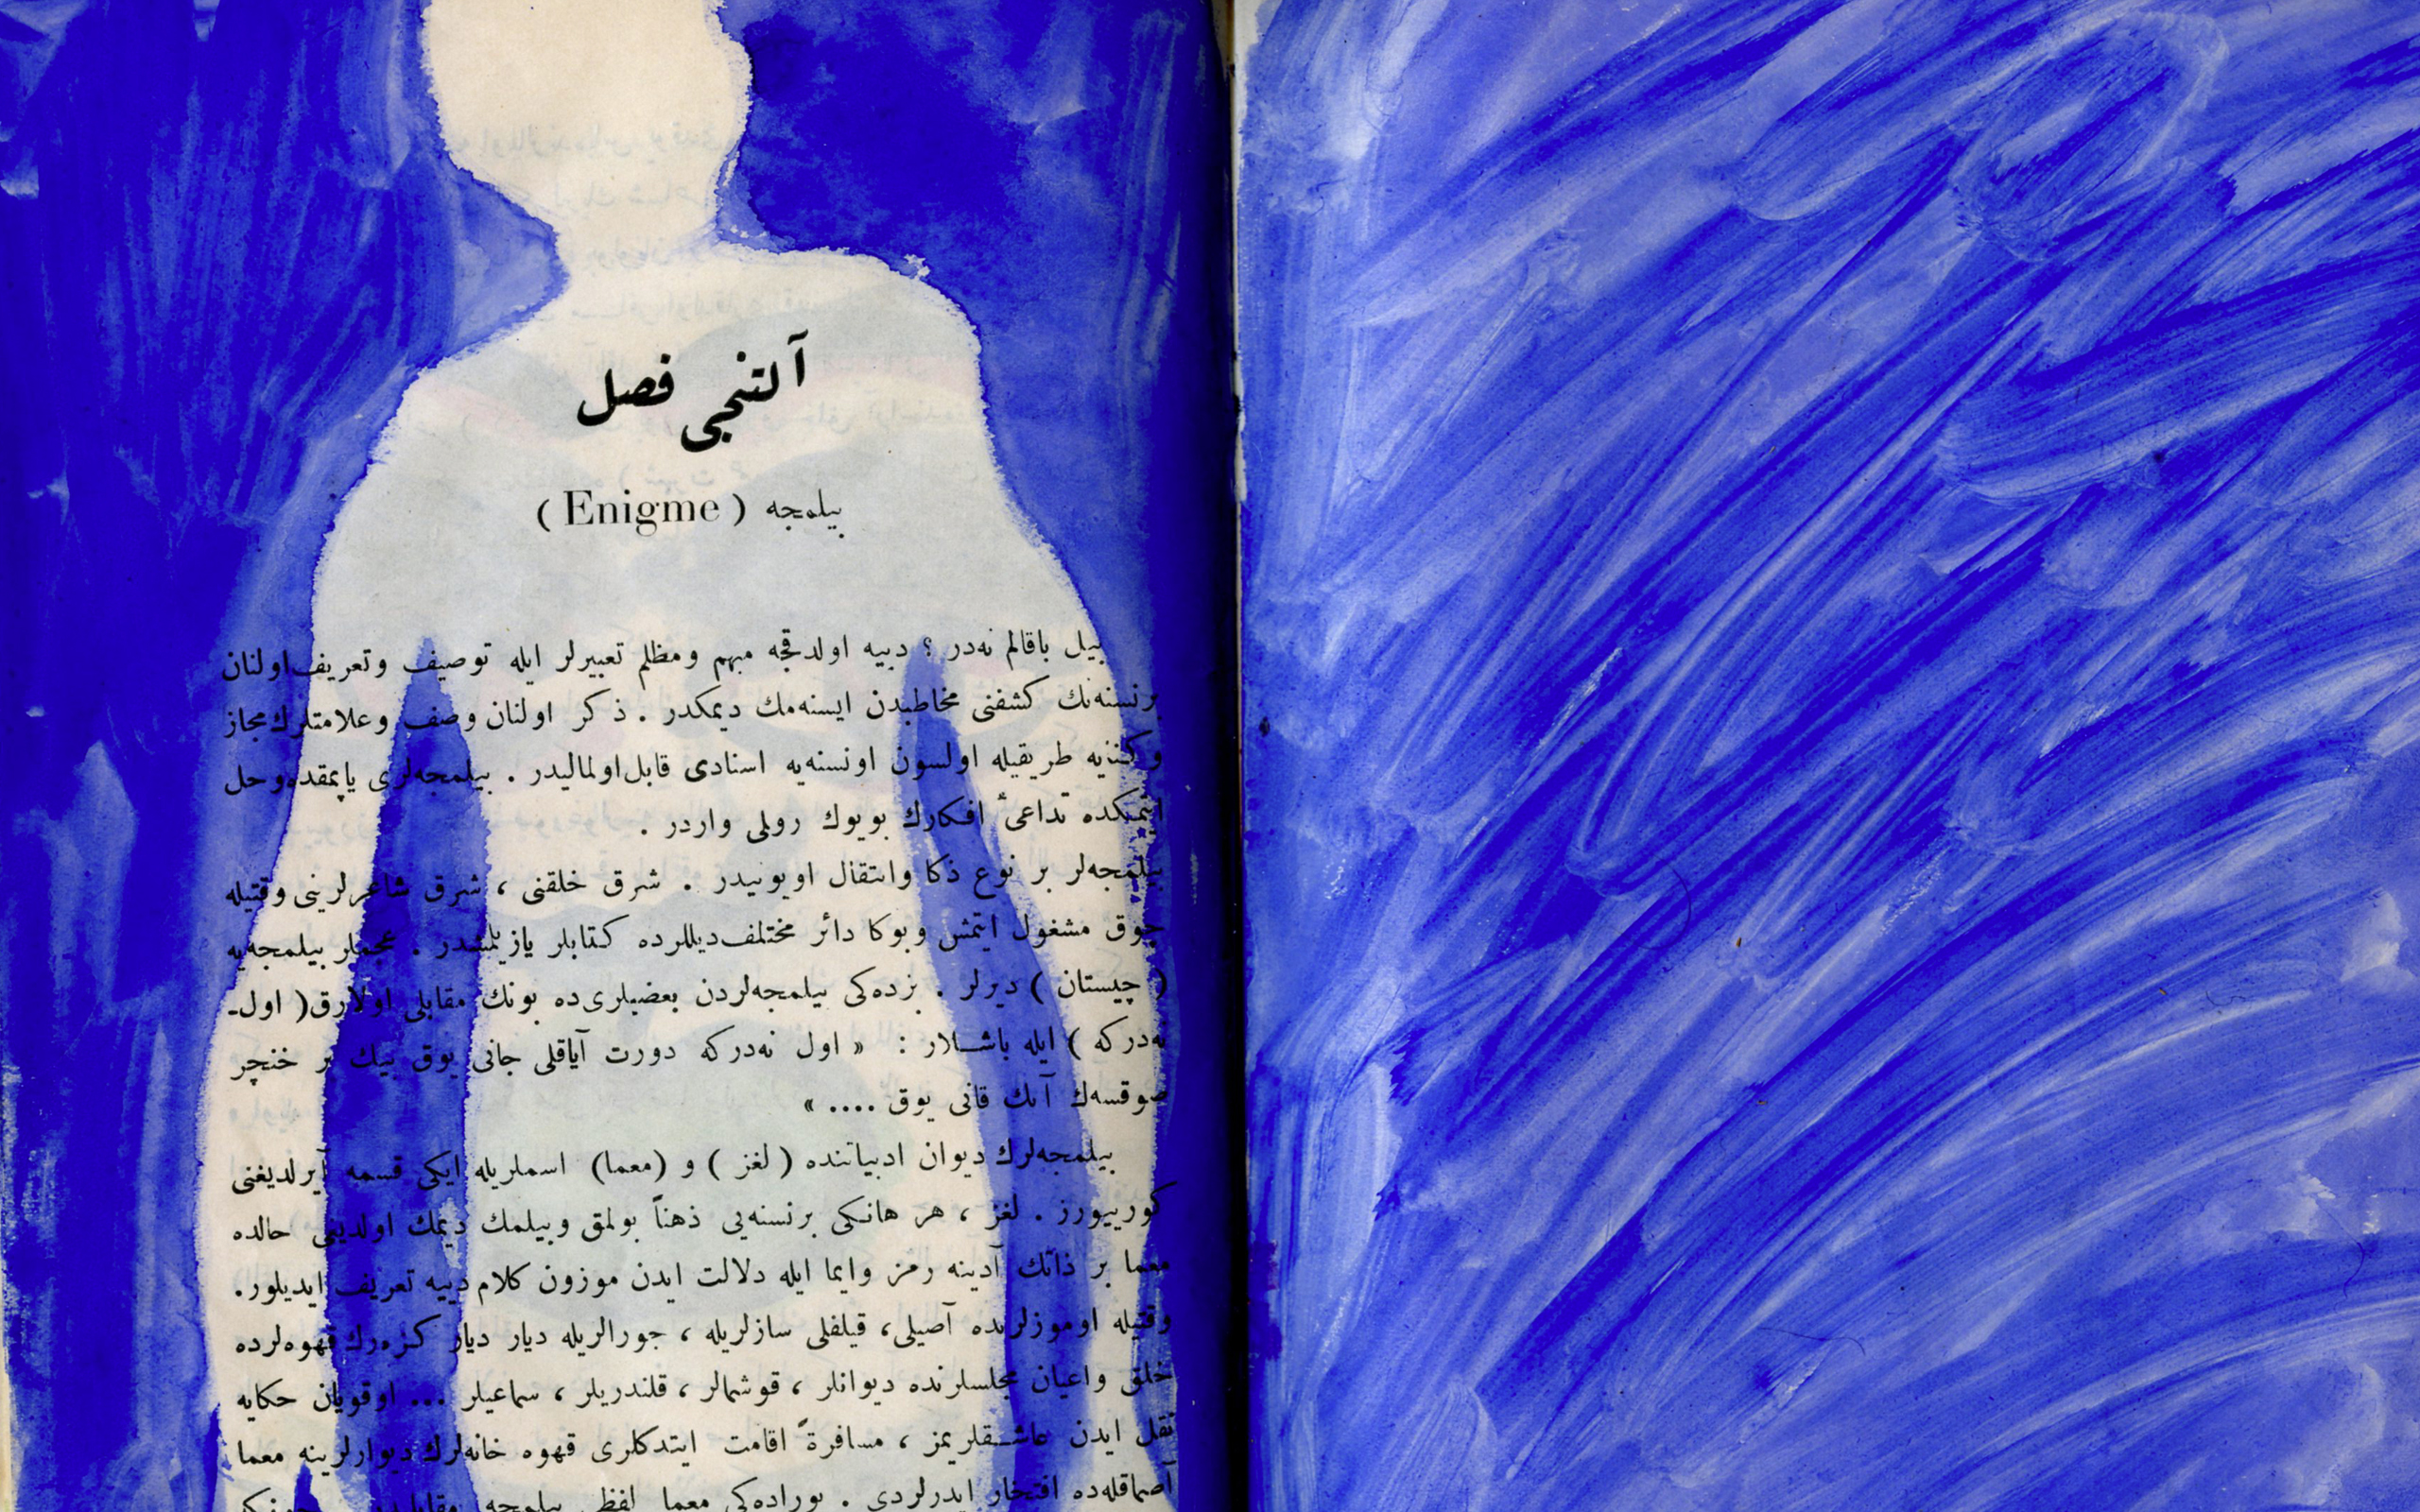 آلتنجی فصل
بیلمجه ( Enigme )
بیل باقالم نه‌در ؟ دییه اولدقجه مبهم ومظلم تعبیرلر ایله توصیف وتعریف اولنان
برنسنه‌نك کشفنی مخاطبدن ایسته‌مك دیمکدر . ذکر اولنان وصف وعلامتلرك مجاز
وکنایه طریقیله اولسون اونسنه‌یه اسنادی قابل اولمالیدر . بیلمجه‌لری یاپمقده وحل
ایتمکده تداعیٔ افکارك بویوك رولی واردر .
بیلمجه‌لر بر نوع ذکا وانتقال اویونیدر . شرق خلقنی ، شرق شاعرلرینی وقتیله
چوق مشغول ایتمش وبوکا دائر مختلف دیللرده کتابلر یازیلمشدر . عجملر بیلمجه‌یه
( چیستان ) دیرلر . بزده‌کی بیلمجه‌لردن بعضیلری ده بونك مقابلی اولارق ( اول-
نه‌درکه ) ایله باشلار : « اول نه‌درکه دورت آیاقلی جانی یوق بیك بر خنچر
صوقسه‌ك آنك قانی یوق .... »
بیلمجه‌لرك دیوان ادبیاتنده ( لغز ) و (معما) اسملریله ایکی قسمه آیرلدیغنی
کورییورز . لغز ، هر هانکی برنسنه‌یی ذهناً بولمق وبیلمك دیمك اولدیغی حالده
معما بر ذاتك آدینه رمز وایما ایله دلالت ایدن موزون کلام دییه تعریف ایدیلور.
وقتیله اوموزلرنده آصیلی، قیلفلی سازلریله ، جورالریله دیار دیار کزه‌رك قهوه‌لرده
خلق واعیان مجلسلرنده دیوانلر ، قوشمالر ، قلندریلر ، سماعیلر ... اوقویان حکایه
نقل ایدن عاشقلریمز ، مسافرةً اقامت ایتدکلری قهوه خانه‌لرك دیوارلرینه معما
آصماقله‌ده افتخار ایدرلردی . بوراده‌کی معما لفظی بیلمجه